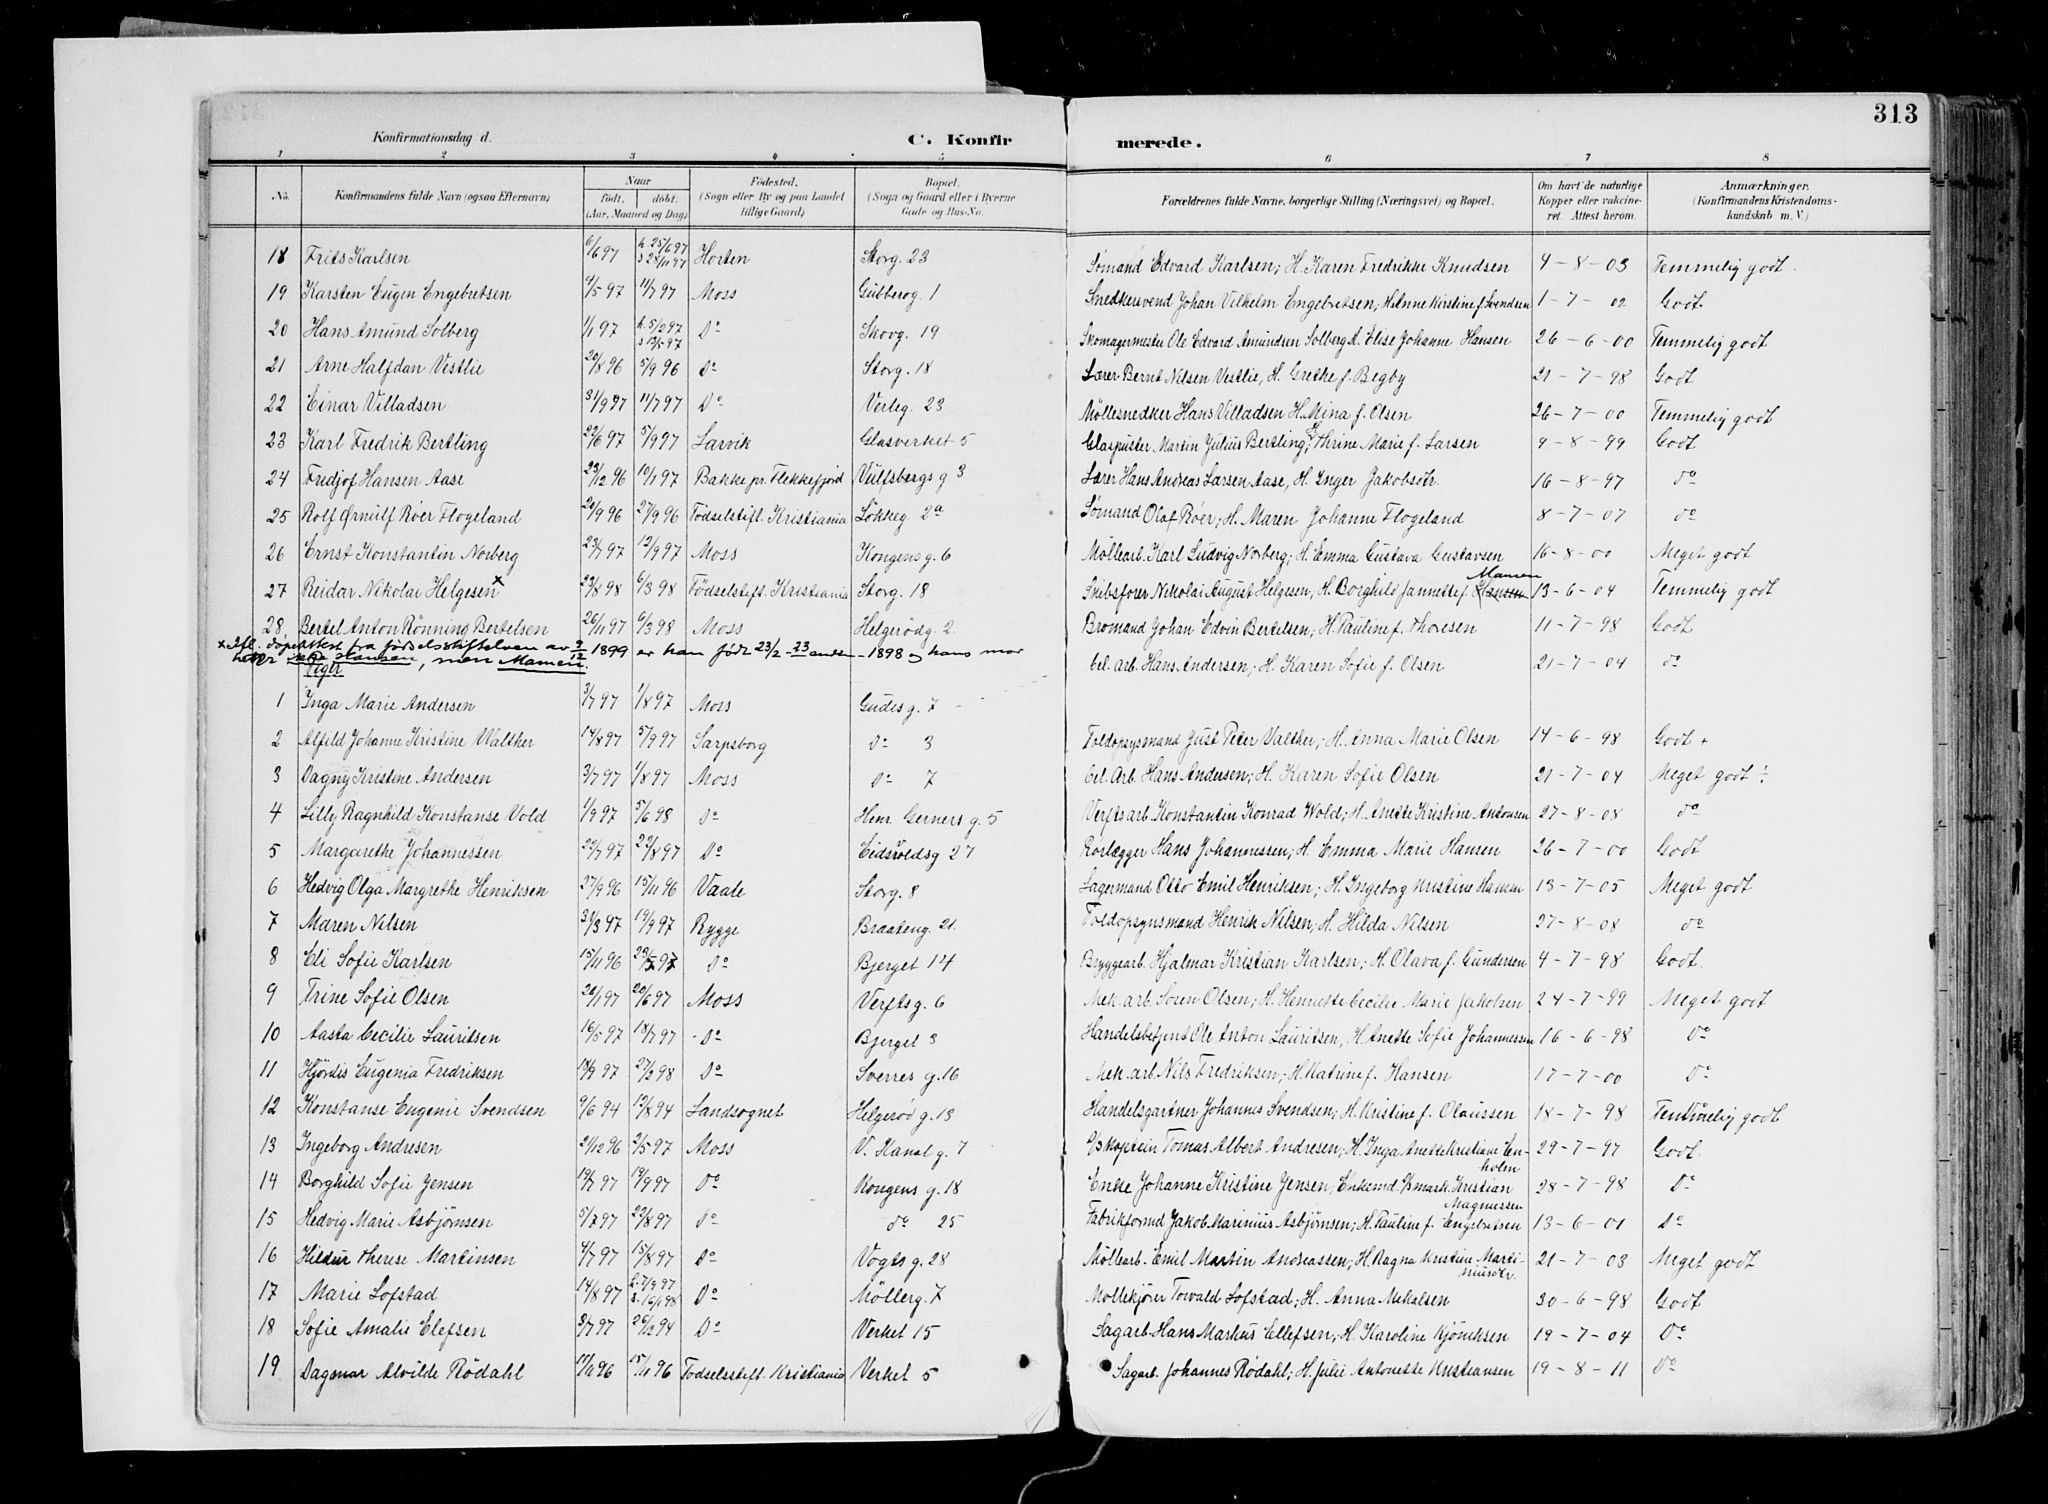 313
Konfirmationsdag d. C. Konfir merede.
1 2 3 4 5 6 7 8
No. Konfirmandens fulde Navn (ogsaa Efternavn) Naar født. døbt. (Aar, Maaned og Dag) Fødested. (Sogn eller By og paa Landet tillige Gaard) Bopæl. (Sogn og Gaard eller i Byerne Gade og Hus-No. Forældrenes fulde Navne, borgerlige Stilling (Næringsvei) og Bopæl. Om havt de naturlige Kopper eller vakcineret. Attest herom. Anmærkninger. (Konfirmandens Kristendomskundskab m. V.)
18 Frits Karlsen 6/6 97 h. 25/6 97 s 28/11 97 Horten Storg. 23 Sömand Edvard Karlsen; H. Karen Fredrikke Knudsen 4-8-03 Temmelig godt.
19 Karsten Eugen Engebretsen 4/5 97 11/7 97 Moss Gubberog. 1 Snedkersvend Johan Vilhelm Engebretsen; H. Anne Kirstine f. Svendsen 1-7-02 Godt
20 Hans Amund Solberg 1/1 97 h. 5/2 97 s 13/5 97 Do Skovg. 19 Skomagermester Ole Edvard Amundsen Solberg H. Elise Johanne Hansen 26-6-00 Temmelig godt
21 Arne Halfdan Vestlie 20/8 96 5/9 96 Do Storg. 18 Lærer Bernt Nilsen Vestlie, H. Grethe f. Begby 21-7-98 Godt
22 Einar Villadsen 11/7 97 Do Verleg. 23 Møllesnedker Hans Villadsen H. Mina f. Olsen 26-7-00 Temmelig godt
23 Karl Fredrik Bertling 22/6 97 5/9 97 Larvik Glasverket 5 Glaspuster Martin Julius Bertling; H. Thrine Marie f. Larsen 9-8-99 Godt
24 Fredjof Hansen Aase 23/12 96 10/1 97 Bakke pr. Flekkefjord Vulfsbergs g 3 Lærer Hans Andreas Larsen Aase, H. Inger Jakobsdtr. 16-8-97 do
25 Rolf Ørnulf Röer Flogeland 20/9 96 27/9 96 Födselstift. Kristiania Lökkeg. 2a Sømand Olaf Röer; H. Maren Johanne Flogeland 8-7-07 do
26 Ernst Konstantin Norberg 23/7 97 12/9 97 Moss Kongens g. 6 Møllearb. Karl Ludvig Norberg; H. Emma Gustava Gustavsen 16-8-00 Meget godt
27 Reidar Nikolai Helgesen x 23/8 98 6/3 98 Födselstift. Kristiania Storg. 18 Skibsfører Nikolai August Helgesen, H. Borghild Jannette f. Hansen Mamen 13-6-04 Temmelig godt
28 Bertel Anton Rönning Bertelsen 26/11 97 6/3 98 Moss Helgerödg. 2. Bromand Johan Edvin Bertelsen; H. Pauline f. Thoresen 11-7-98 Godt
x Ifl. dåpsattest fra fødselsstiftelsen av 2/12 1899 er han født 23/2 - 23 anden - 1898 og hans mor
heter ikke Hansen, men Mamen.
Piger
1 Inga Marie Andersen 3/7 97 1/8 97 Moss Gudes g. 7 Cel. arb. Hans Andersen; H. Karen Sofie f. Olsen 21-7-04 do
2 Alfild Johanne Kristine Walther 14/8 97 5/9 97 Sarpsborg Do 3 Toldopsynsmand Just Peter Valther; H. Anna Marie Olsen 14-6-98 Godt +
3 Dagny Kristine Andersen 3/7 97 1/8 97 Moss Do 7 Cel. Arb. Hans Andersen; H. Karen Sofie Olsen 21-7-04 Meget godt ÷
4 Lilly Ragnhild Konstanse Vold 1/9 97 5/6 98 Do Henr. Gerners g. 5 Verftsarb. Konstantin Konrad Wold; H. Anette Kristine Antonsen 27-8-08 do
5 Margarethe Johannessen 22/7 97 22/8 97 Do Eidsvoldsg 27 Rørlægger Hans Johannessen; H. Emma Marie Hansen 26-7-00 Godt
6 Hedvig Olga Margrethe Henriksen 27/9 96 15/11 96 Vaale Storg. 8 Lagermand Otto Emil Henriksen; H. Ingeborg Kristine Hansen 13-7-05 Meget godt
7 Maren Nilsen 31/3 97 19/9 97 Rygge Braateng. 21. Toldopsynsmand Henrik Nilsen; H. Hilda Nilsen 27-8-08 do
8 Eli Sofie Karlsen 15/11 96 23/5 97 Do Bjerget 14 Bryggearb. Hjalmar Kristian Karlsen; H. Olava f. Gundersen 4-7-98 Godt.
9 Trine Sofie Olsen 20/1 97 20/6 97 Moss Verftsg. 6 Mek. arb. Soren Olsen; H. Henriette Cecilie Marie Jakobsen 24-7-99 Meget godt
10 Aasta Cecilie Lauritsen 16/5 97 18/7 97 Do Bjerget 3 Handelsbetjent Ole Anton Lauritsen, H. Anette Sofie Johannessen 16-6-98 Do
11 Hjördis Eugenia Fredriksen 27/2 98 Do Sverres g. 16 Mek. arb. Nils Fredriksen; H. Katrine f. Hansen 17-7-00 Do
12 Konstanse Eugenie Svendsen 9/6 94 12/8 94 Landsognet Helgeröd g. 13 Handelsgartner Johannes Svendsen; H. Kristine f. Olaussen 18-7-98 Temmelig godt
13 Ingeborg Andresen 21/12 96 2/5 97 Moss V. Kanal g. 7 D/Skaptein Tomas Albert Andresen; H. Inga Anette Kristiane Enholm 29-7-97 Godt.
14 Borghild Sofie Jensen 19/7 97 19/9 97 Do Kongens g. 18 Enke Johanne Kristine Jensen; Enkemd. Kristian Magnussen 28-7-98 Do
15 Hedvig Marie Asbjørnsen 5/7 97 22/8 97 Do do 25 Fabrikformd Jakob Marinius Asbjørnsen; H. Pauline f. Engebretsen 13-6-01 Do
16 Hildur Therese Martinsen 4/7 97 15/8 97 Do Vogts g. 28 Møllearb. Emil Martin Andreassen; H. Ragna Kristine Martinusdtr. 21-7-03 Meget godt
17 Marie Lofstad 14/8 97 h. 7/9 97 s. 16/1 98 Do Möllerg. 7 Möllekjörer Torvald Lofstad; H. Anna Mikalsen 30-6-98 Godt
18 Sofie Amalie Elefsen 3/7 97 26/12 94 Do Verket 15 Sagarb. Hans Markus Ellefsen; H. Karoline Kjöniksen 19-7-04 Do
19 Dagmar Alvilde Rödahl 15/11 96 Födselsstift. Kristiania Verket 5 Sagarb. Johannes Rödahl; H. Julie Antonette Kristiansen 19-8-11 Do